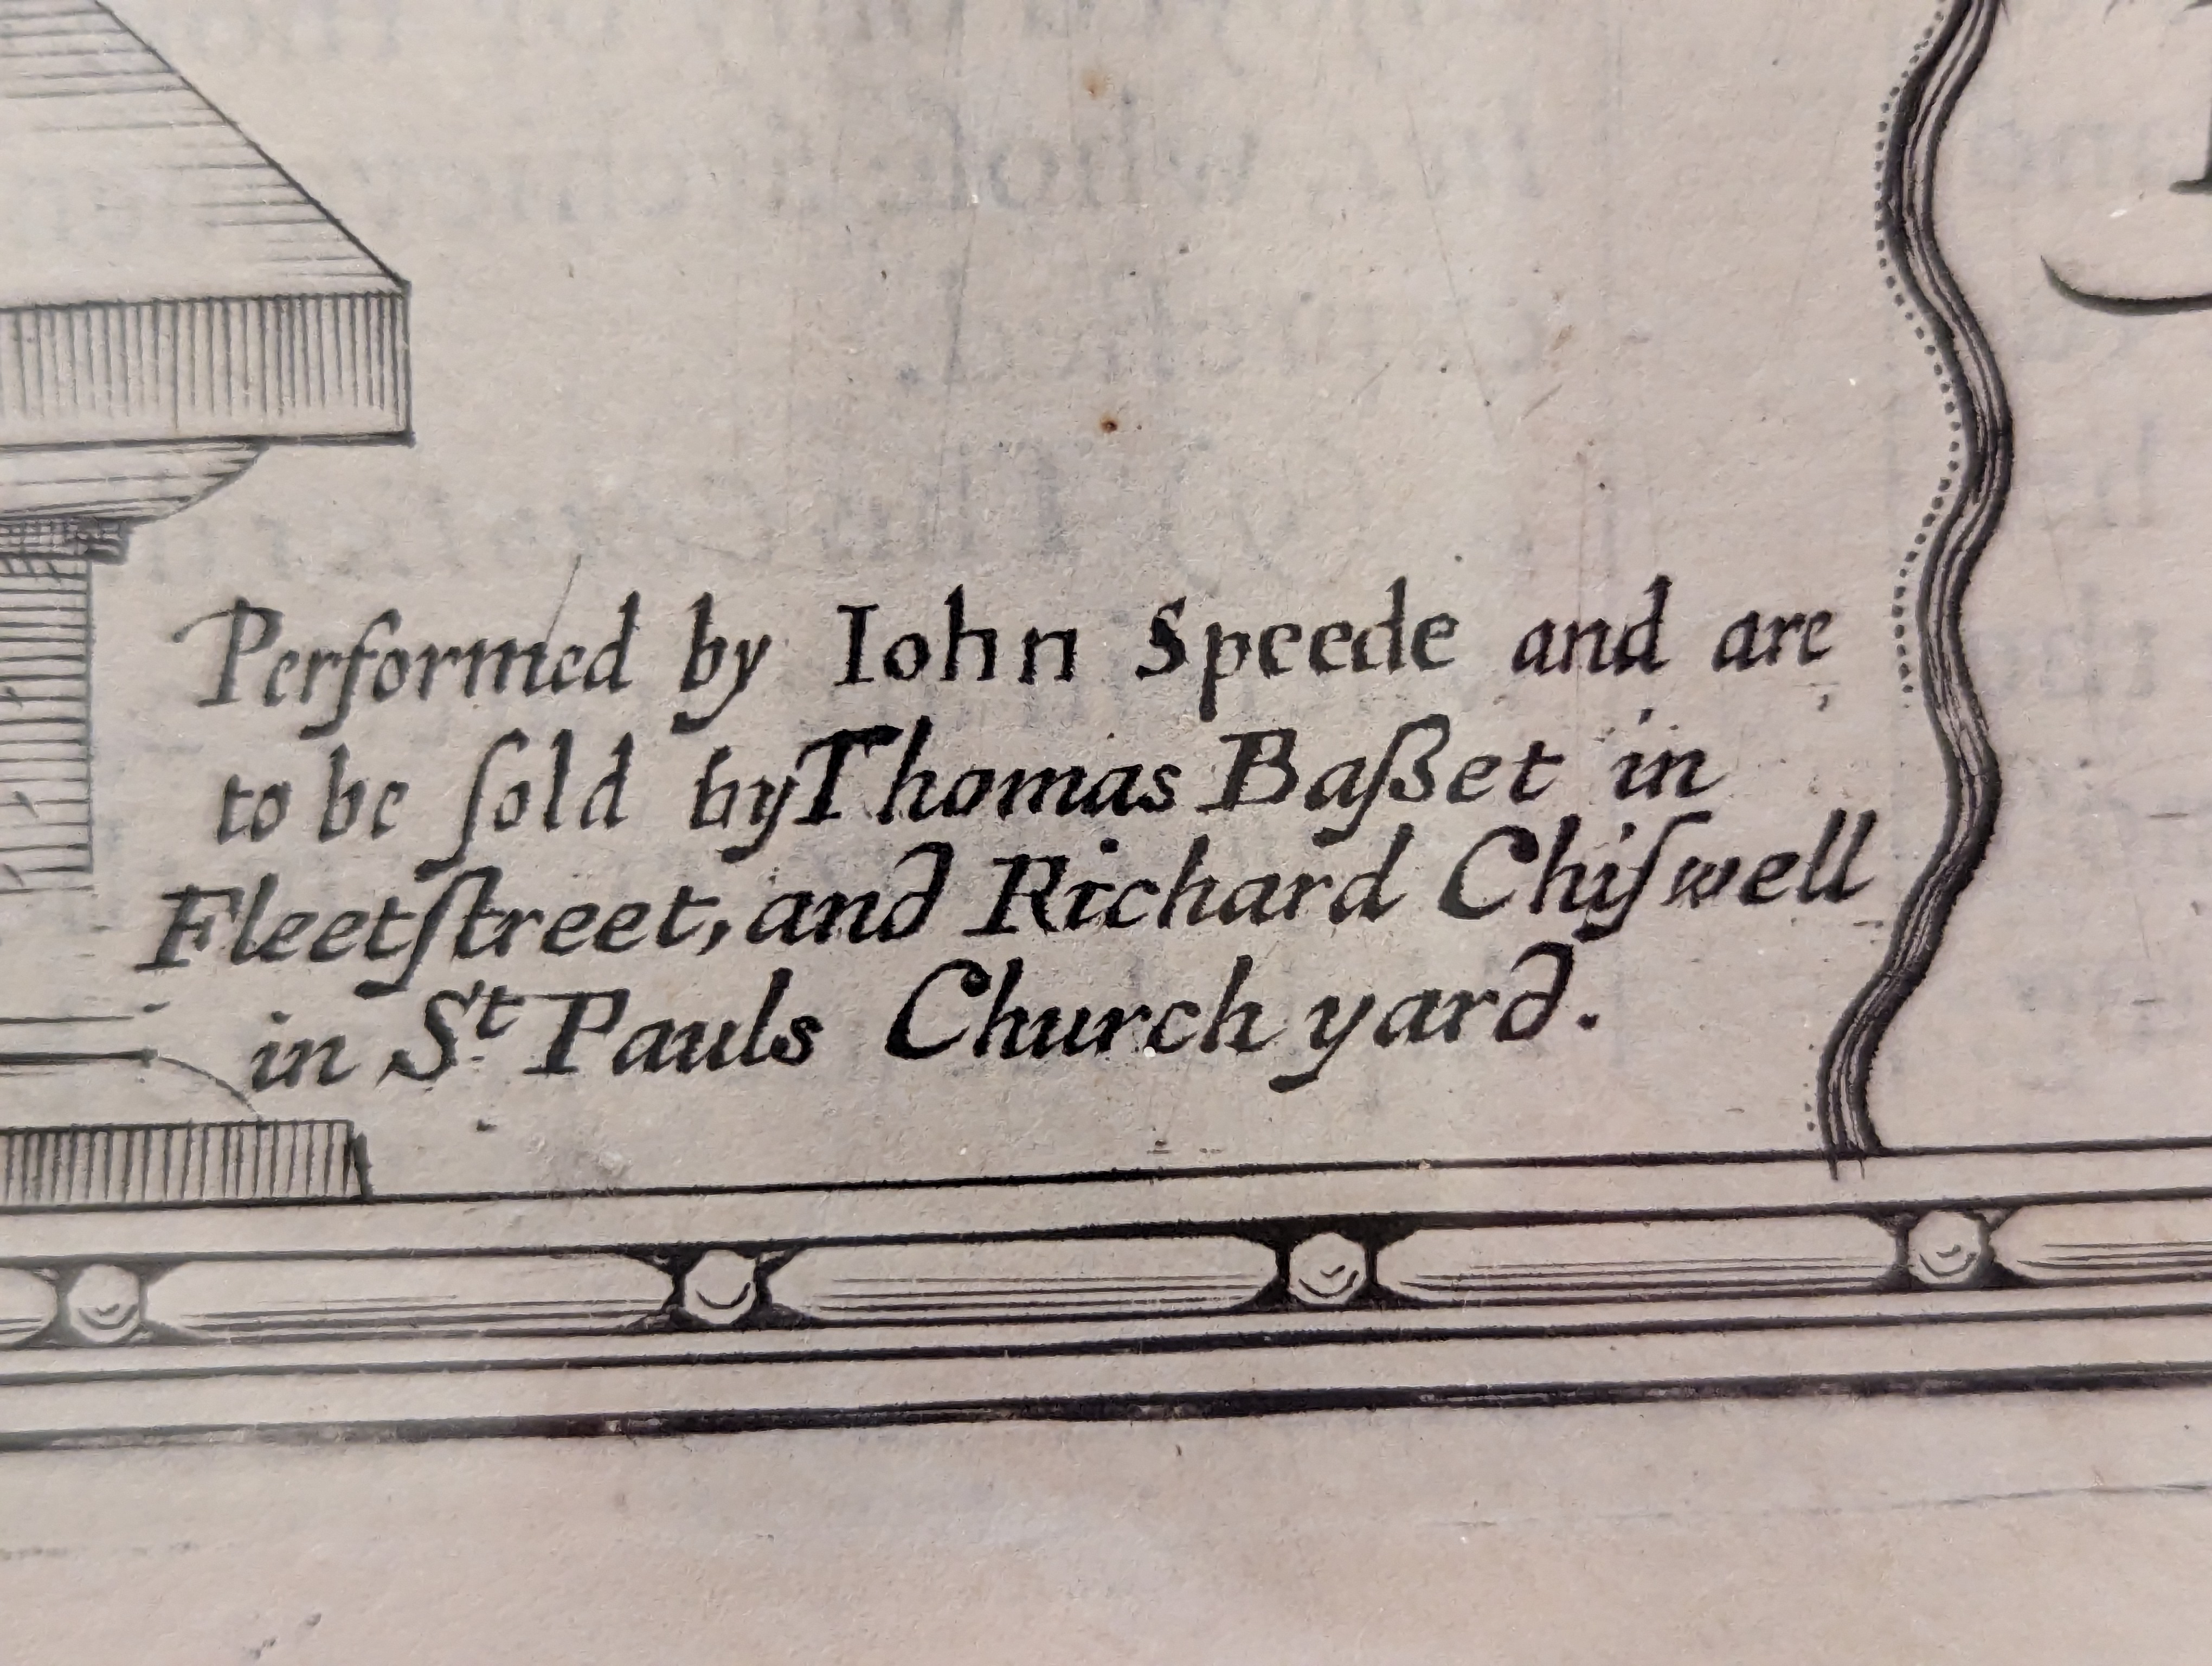 Performed by Iohn Speede and are
to be ſold by Thomas Baßet in
Fleetſtreet, and Richard Chiſwell
in St Pauls Church yard.